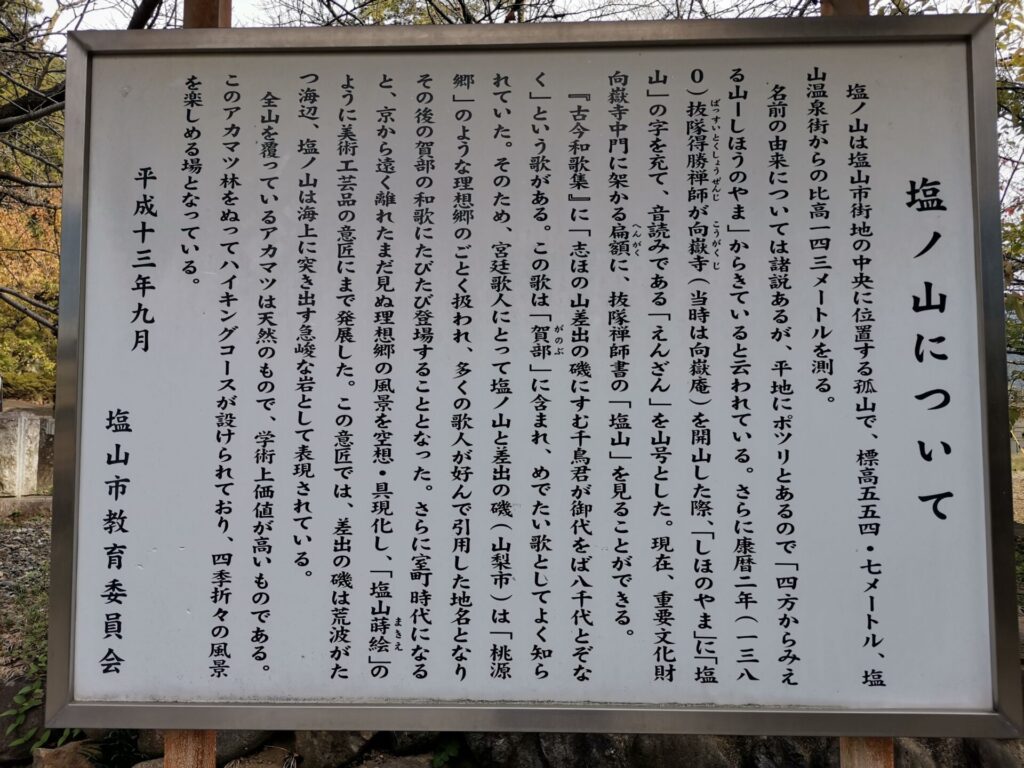 塩ノ山について
塩ノ山は塩山市街地の中央に位置する孤山で、標高五五四・七メートル、塩
山温泉街からの比高一四三メートルを測る。
名前の由来については諸説あるが、平地にポツリとあるので「四方からみえ
る山ーしほうのやま」からきていると云われている。さらに康暦二年(一三八
0)抜隊得勝禅師が向嶽寺(当時は向嶽庵)を開山した際、「しほのやま」に「塩
ばっすいとくしょうぜんじ こうがくじ
山」の字を充て、音読みである「えんざん」を山号とした。現在、重要文化財
向嶽寺中門に架かる扁額に、抜隊禅師書の「塩山」を見ることができる。
へんがく
『古今和歌集』に「志ほの山差出の磯にすむ千鳥君が御代をば八千代とぞな
く」という歌がある。この歌は「賀部」に含まれ、めでたい歌としてよく知ら
がのぶ
れていた。そのため、宮廷歌人にとって塩ノ山と差出の磯(山梨市)は「桃源
郷」のような理想郷のごとく扱われ、多くの歌人が好んで引用した地名となり
その後の賀部の和歌にたびたび登場することとなった。さらに室町時代になる
と、京から遠く離れたまだ見ぬ理想郷の風景を空想・具現化し、「塩山蒔絵」の
まきえ
ように美術工芸品の意匠にまで発展した。この意匠では、差出の磯は荒波がた
つ海辺、塩ノ山は海上に突き出す急峻な岩として表現されている。
全山を覆っているアカマツは天然のもので、学術上価値が高いものである。
このアカマツ林をぬってハイキングコースが設けられており、四季折々の風景
を楽しめる場となっている。
平成十三年九月
塩山市教育委員会